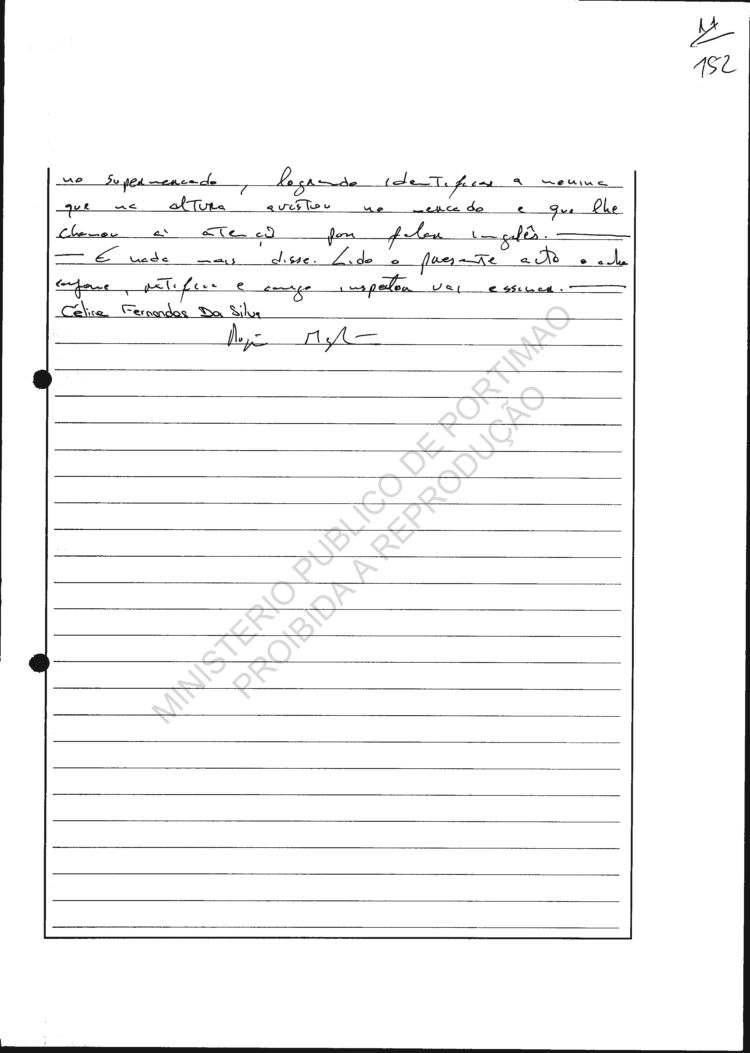 152
no supermercado, logrando identificar a menina
que na altura avistou no mercado e que lhe
chamou à atenção por falar inglês.
— E nada mais disse. Lido o presente auto o acha
conforme, ratifica e comigo inspector vai assinar.
Céline Fernandes Da Silva
MINISTERIO PUBLICO DE PORTIMAO
PROIBIDA A REPRODUÇÃO